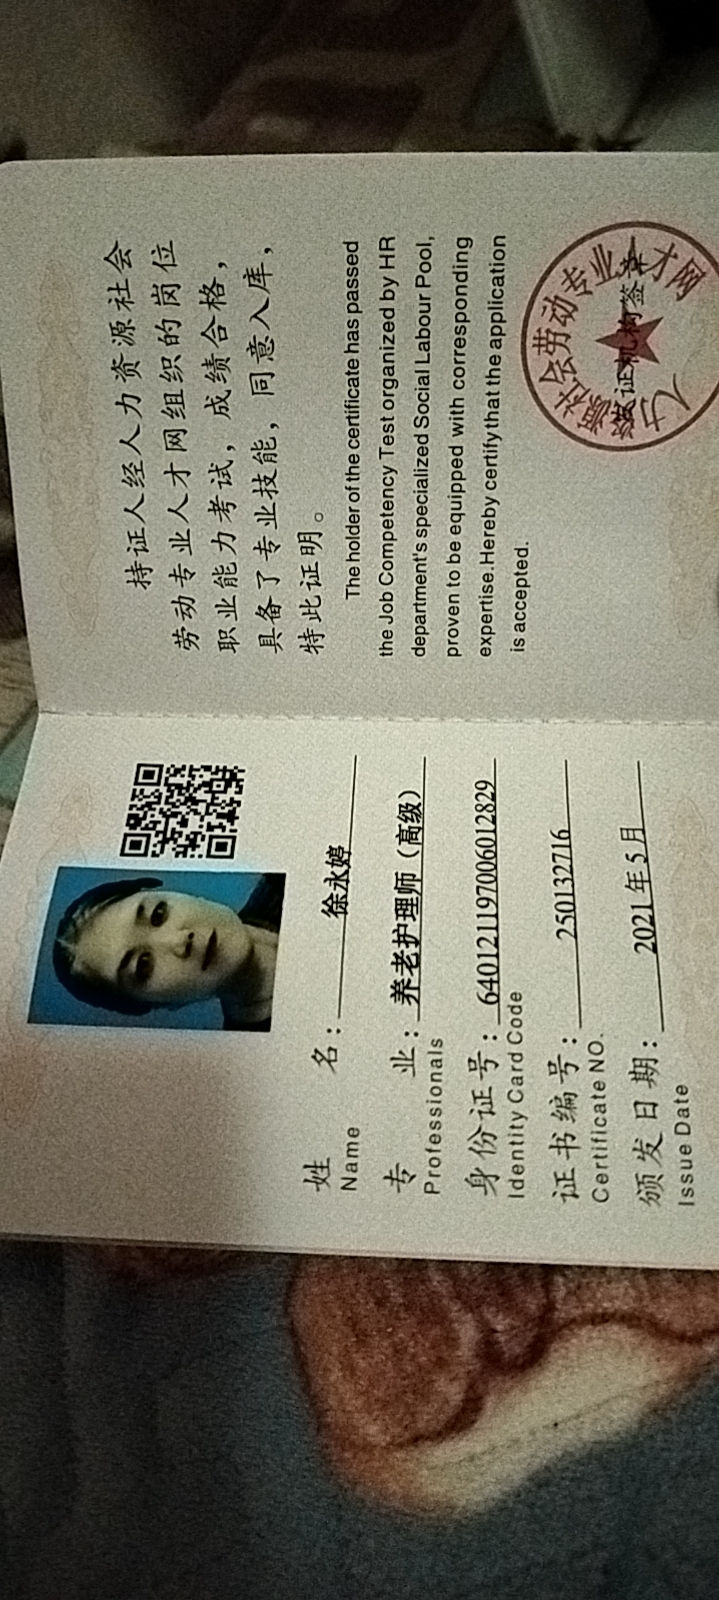 姓名：徐永婷
Name
专业：养老护理师（高级）
Professionals
身份证号：640121197006012829
Identity Card Code
证书编号：250132716
Certificate NO.
颁发日期：2021年5月
Issue Date
持证人经人力资源社会
劳动专业人才网组织的岗位
职业能力考试，成绩合格，
具备了专业技能，同意入库，
特此证明。
The holder of the certificate has passed
the Job Competency Test organized by HR
department's specialized Social Labour Pool,
proven to be equipped with corresponding
expertise.Hereby certify that the application
is accepted.
人力资源社会劳动专业人才网
发证机构签章